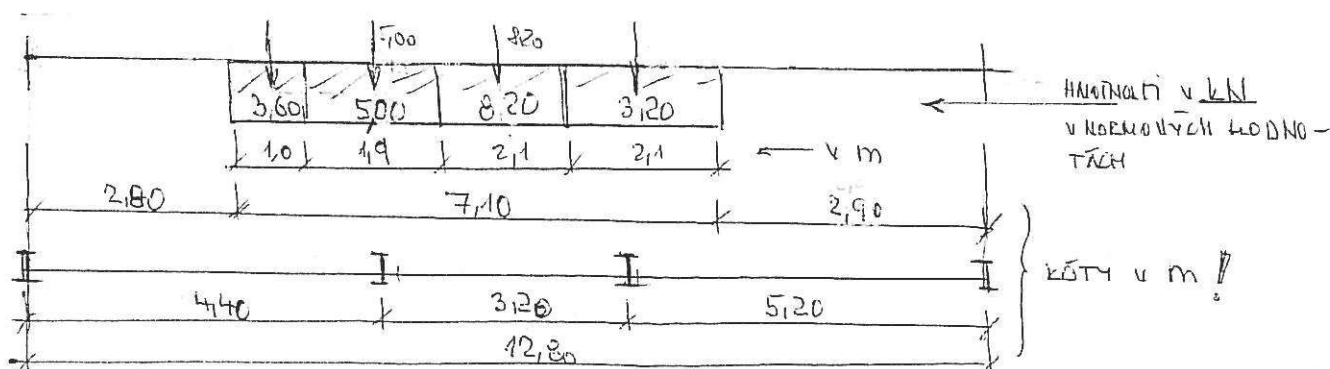 5,00 8,20
3,60 5,00 8,20 3,20
HMOTNOSTI V KN
V NORMOVÝCH HODNO-
TÁCH
1,0 1,9 2,1 2,1 ← V m
2,80 7,10 2,90
KÓTY V m !
4,40 3,20 5,20
12,80